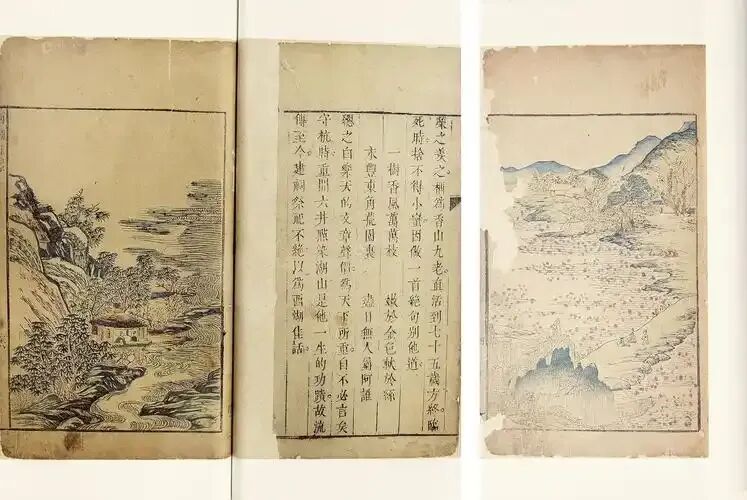 樂之羨之稱爲香山九老直活到七十五歲方終臨
死時捨不得小蠻因做一首絕句別他道
一樹香風萬萬枝　嫩於金色軟於絲
永豐東角荒園裏　盡日無人屬阿誰
總之白樂天的文章聲價爲天下所重自不必言矣
守杭時重開六井點染湖山是他一生的功蹟故流
傳至今建祠祭祀不絕以爲西湖佳話